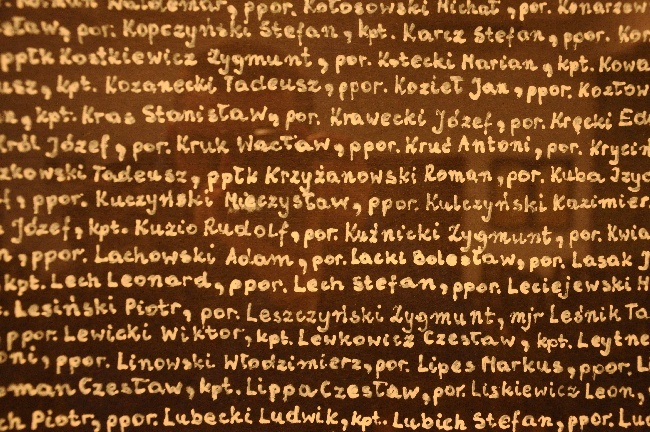 Waldemar, ppor. Kołosowski Michał, por. Konarzew
sław, por. Kopczyński Stefan, kpt. Karcz Stefan, ppor. Kor
ppłk Kostkiewicz Zygmunt, por. Kotecki Marian, kpt. Kowa
usz, kpt. Kozanecki Tadeusz, ppor. Kozieł Jan, ppor. Kozłow
kpt. Kras Stanisław, por. Krawecki Józef, por. Kręcki Ed
Król Józef, por. Kruk Wacław, ppor. Kruś Antoni, por. Kryciń
zkowski Tadeusz, ppłk Krzyżanowski Roman, por. Kuba Izyd
f, ppor. Kuczyński Mieczysław, ppor. Kulczyński Kazimier
Józef, kpt. Kuzio Rudolf, por. Kuźnicki Zygmunt, por. Kwia
n, ppor. Lachowski Adam, por. Łacki Bolesław, por. Lasak J
kpt. Lech Leonard, ppor. Lech Stefan, ppor. Leciejewski H
Lesiński Piotr, por. Leszczyński Zygmunt, mjr Leśnik Ta
ppor. Lewicki Wiktor, kpt. Lewkowicz Czesław, kpt. Leytne
oni, ppor. Linowski Włodzimierz, por. Lipes Markus, ppor. Li
man Czesław, kpt. Lippa Czesław, por. Liskiewicz Leon,
ch Piotr, ppor. Lubecki Ludwik, kpt. Lubich Stefan, ppor. Lu